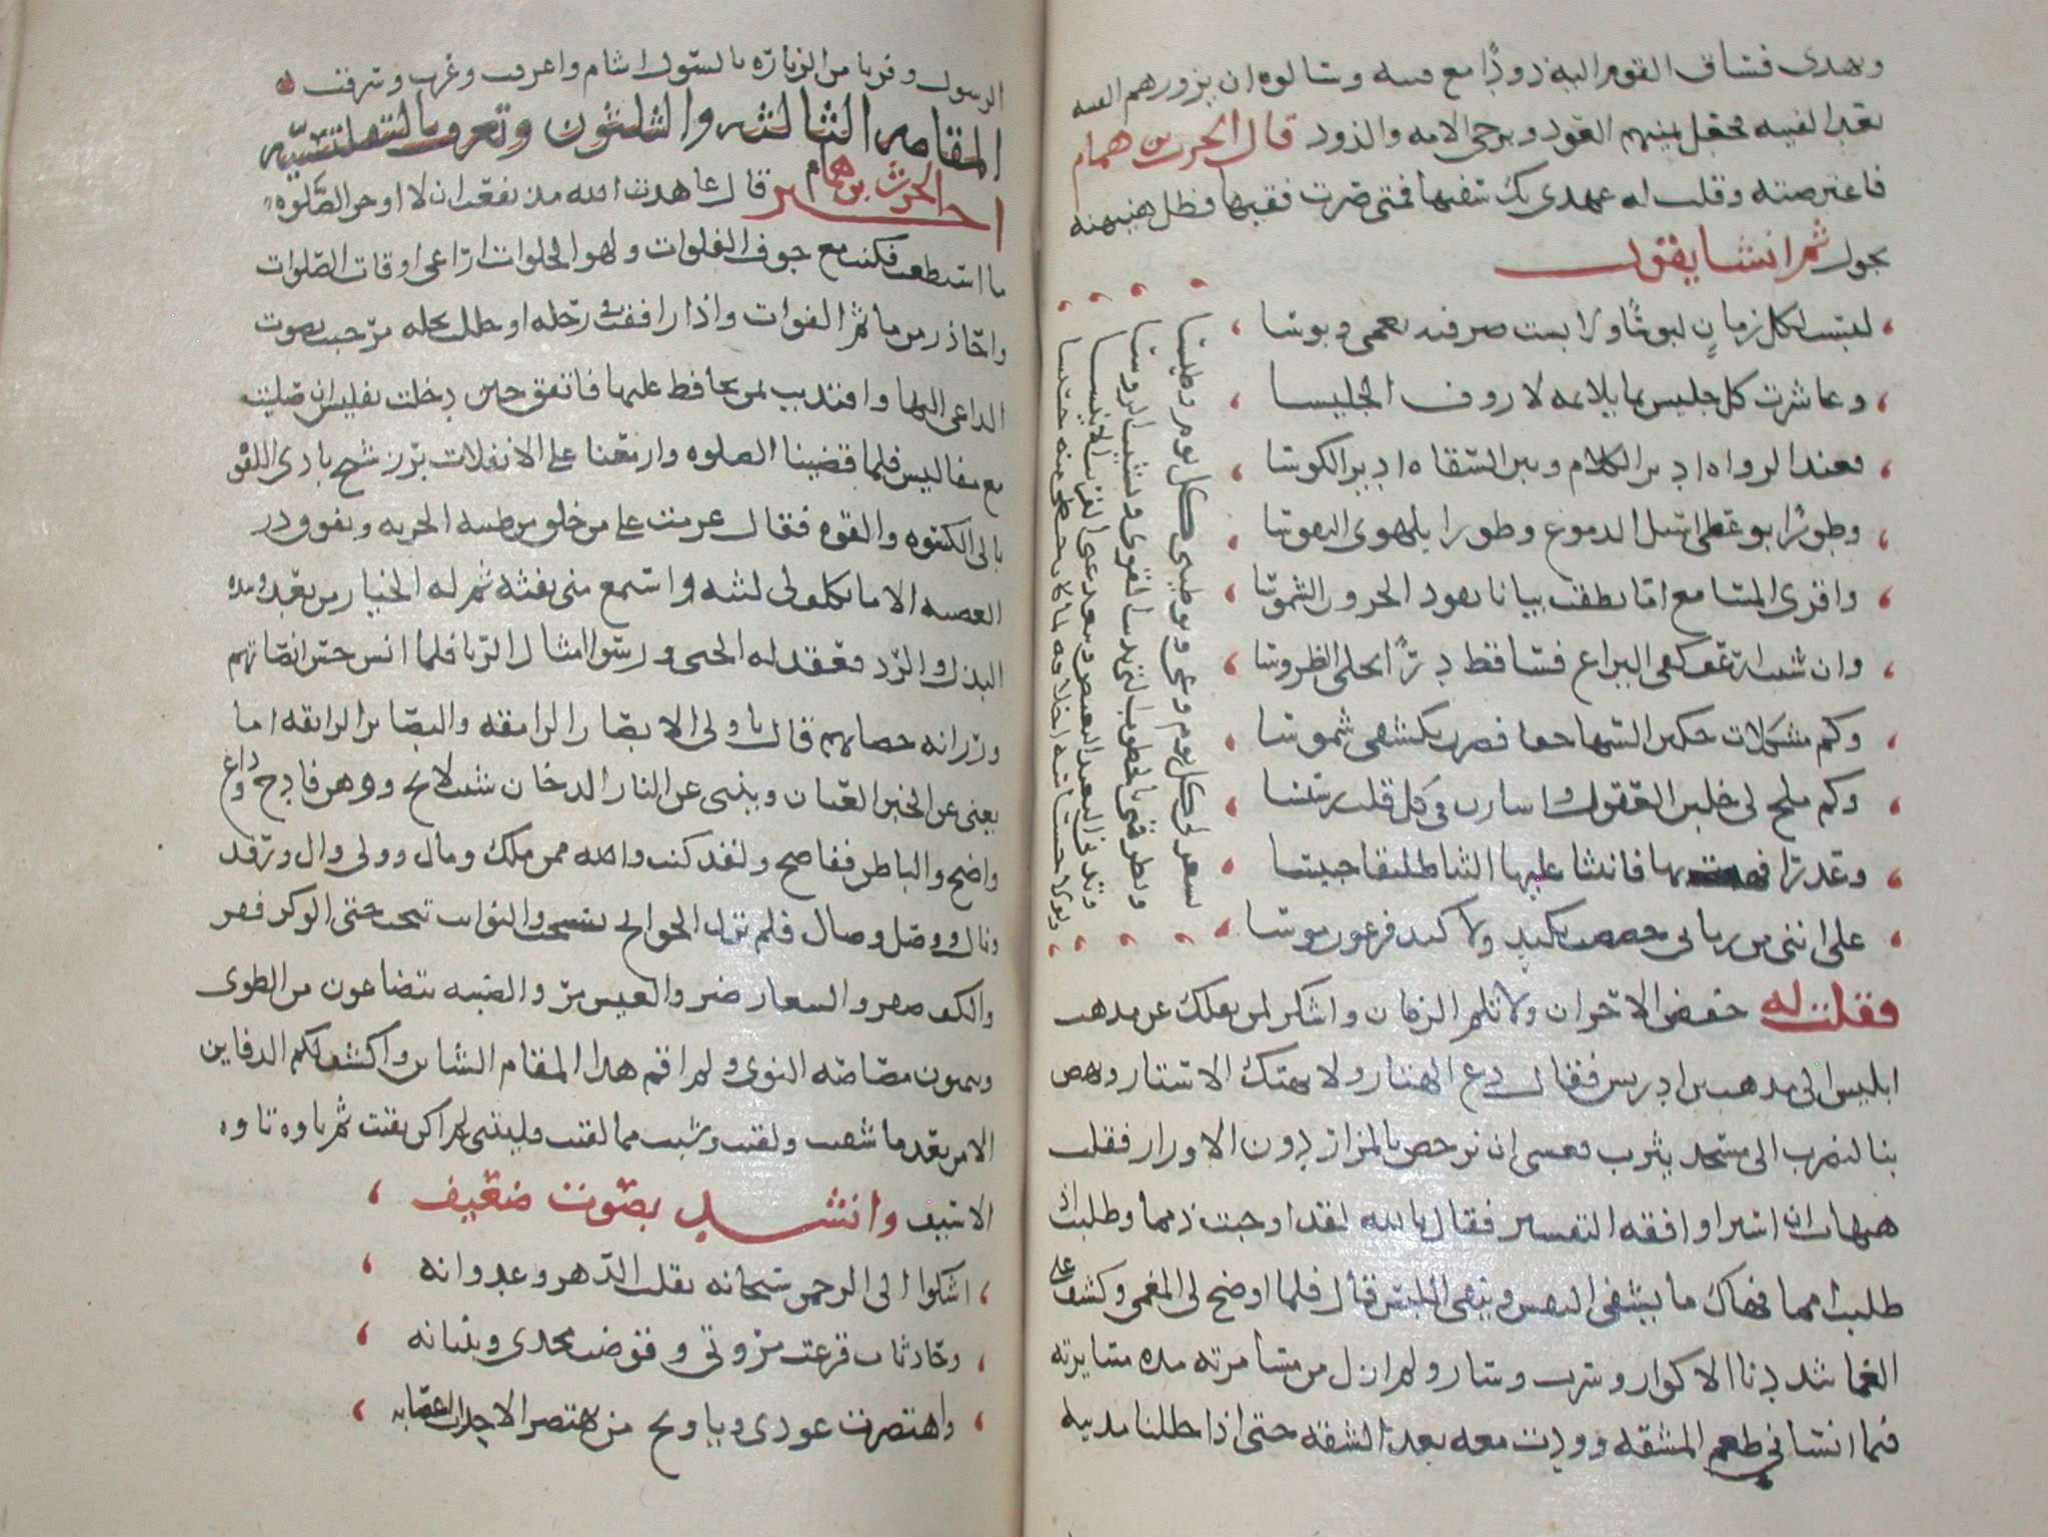 ويهدى فساق القوم اليه ذودًا مع قينه وسالوه ان يزورهم الفينه
بعد الفينه فنهض يمنيهم العود ويزجى الامه والذود قال الحرث بن همام
فاعترضته وقلت له عهدى بك سفيها فمتى صرت فقيها فظل هنيهه
يجول ثم انشا يقول
لبست لكل زمان لبوسًا ولابست صرفيه نعمى وبوسا
وعاشرت كل جليس بما يلايمه لاروق الجليسا
فعند الرواه ادير الكلام وبين السقاه ادير الكوسا
وطورًا بوعظى اسيل الدموع وطورا بلهوى
واقرى المسامع اما نطقت بيانا يقود الحرون الشموسا
وان شيت ارعف كفى اليراع فساقط درًا يحلى الطروسا
وكم مشكلات حكين السها خفا فصرن بكشفى شموسا
وكم ملح لى خلبن العقول واسارن فى كل قلب رسيسا
وعذرا فهت بها فانثنا عليها الثنا طليقا حبيسا
على اننى من زمانى خصصت بكيد ولا كيد فرعون موسا
يسعر لى كل يوم وغى كل يوم وطيسا
ويطرقنى بالخطوب التى يذبن القوى ويشيبن الروسا
ويدنى الى البعيد البغيض ويبعد عنى القريب الانيسا
ولولا خساسه اخلاقه لما كان حظى منه خسيسا
فقلت له خفض الاحزان ولا تلم الزمان واشكر لمن نقلك عن مذهب
ابليس الى مذهب بن ادريس فقال دع الهتار ولا تهتك الاستار وانهض
بنا لنضرب الى مسجد يثرب فعسى ان نرحض بالمزار درن الاوزار فقلت
هيهات ان اسير او افقه التفسير فقال تالله لقد اوجبت ذمما وطلبت اذ
طلبت امما فهاك ما يشفى النفس وينفى اللبس قال فلما اوضح لى المعمى وكشف عنى
الغما شددنا الاكوار وسرت وسار ولم ازل من مسامرته مده مسايرته
فيما انسانى طعم المشقه ووددت معه بعد الشقه حتى اذا حللنا مدينه
الرسول وفزنا من الزياره بالسول اشام واعرقت وغرب وشرقت
المقامه الثالثه والثلثون وتعرف بالتفليسيه
اخبر الحرث بن همام قال عاهدت الله مذ يفعت ان لا اوخر الصلوه
ما استطعت فكنت مع جوب الفلوات ولهو الخلوات اراعى اوقات الصلوات
واحاذر من ماثم الفوات واذا رافقت فى رحله او حللت بحله مرحبت بصوت
الداعى اليها واقتديت بمن يحافظ عليها فاتفق حين دخلت تفليس ان صليت
مع مفاليس فلما قضينا الصلوه وازمعنا على الانفلات برز شيخ بادى اللقوه
بالى الكسوه والقوه فقال عزمت على من خلق من طينه الحريه وتفوق در
العصبيه الا ما تكلف لى لبثه واستمع منى نفثه ثم له الخيار من بعد وبيده
البذل والرد فعقد له الحبى ورسوا امثال الربا فلما انس حسن انصاتهم
ورزانه حصاتهم قال يا ولى الابصار الرامقه والبصاير الرايقه اما
يغنى عن الخبر العيان وينبى عن النار الدخان شيب لايح ووهن فادح وداء
واضح والباطن ففاضح ولقد كنت والله ممن ملك ومال وولى وال ورفد
ونال ووصل وصال فلم تزل الجوايح تسحت والنوايب تنحت حتى الوكر قفر
والكف صفر والشعار ضر والعيش مر والصبيه يتضاغون من الطوى
ويتمنون مصاصه النوى ولم اقم هذا المقام الشاين واكشف لكم الدفاين
الا من بعد ما شقيت ولقيت وشبت مما لقيت فليتنى لم اكن بقيت ثم تاوه تاوه
الاسيف وانشد بصوت ضعيف
اشكوا الى الرحمن سبحانه تقلب الدهر وعدوانه
وحادثات قرعت مروتى وقوضت مجدى وبنيانه
واهتصرت عودى ويا ويح من تهتصر الاحداث اغصانه